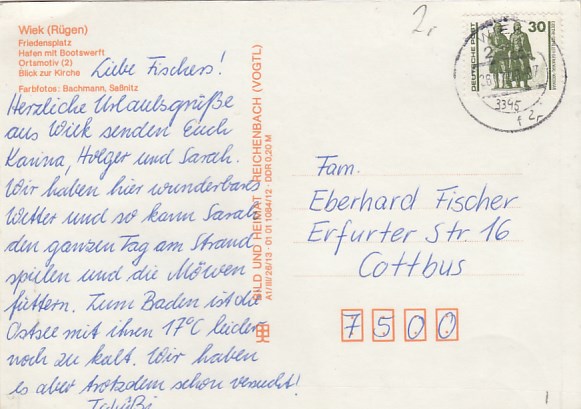 Wiek (Rügen)
Friedensplatz
Hafen mit Bootswerft
Ortsmotiv (2)
Blick zur Kirche
Farbfotos: Bachmann, Saßnitz
Liebe Fischers!
Herzliche Urlaubsgrüße
aus Wiek senden Euch
Karina, Holger und Sarah.
Wir haben hier wunderbares
Wetter und so kann Sarah
den ganzen Tag am Strand
spielen und die Möwen
füttern. Zum Baden ist die
Ostsee mit ihren 17°C leider
noch zu kalt. Wir haben
es aber trotzdem schon versucht!
Tschüß!
BILD UND HEIMAT REICHENBACH (VOGTL)
A1/III/26/13 · 01 01 1084/12 · DDR 0,20 M
2,
DEUTSCHE POST
30
3345
Fam.
Eberhard Fischer
Erfurter Str. 16
Cottbus
7500